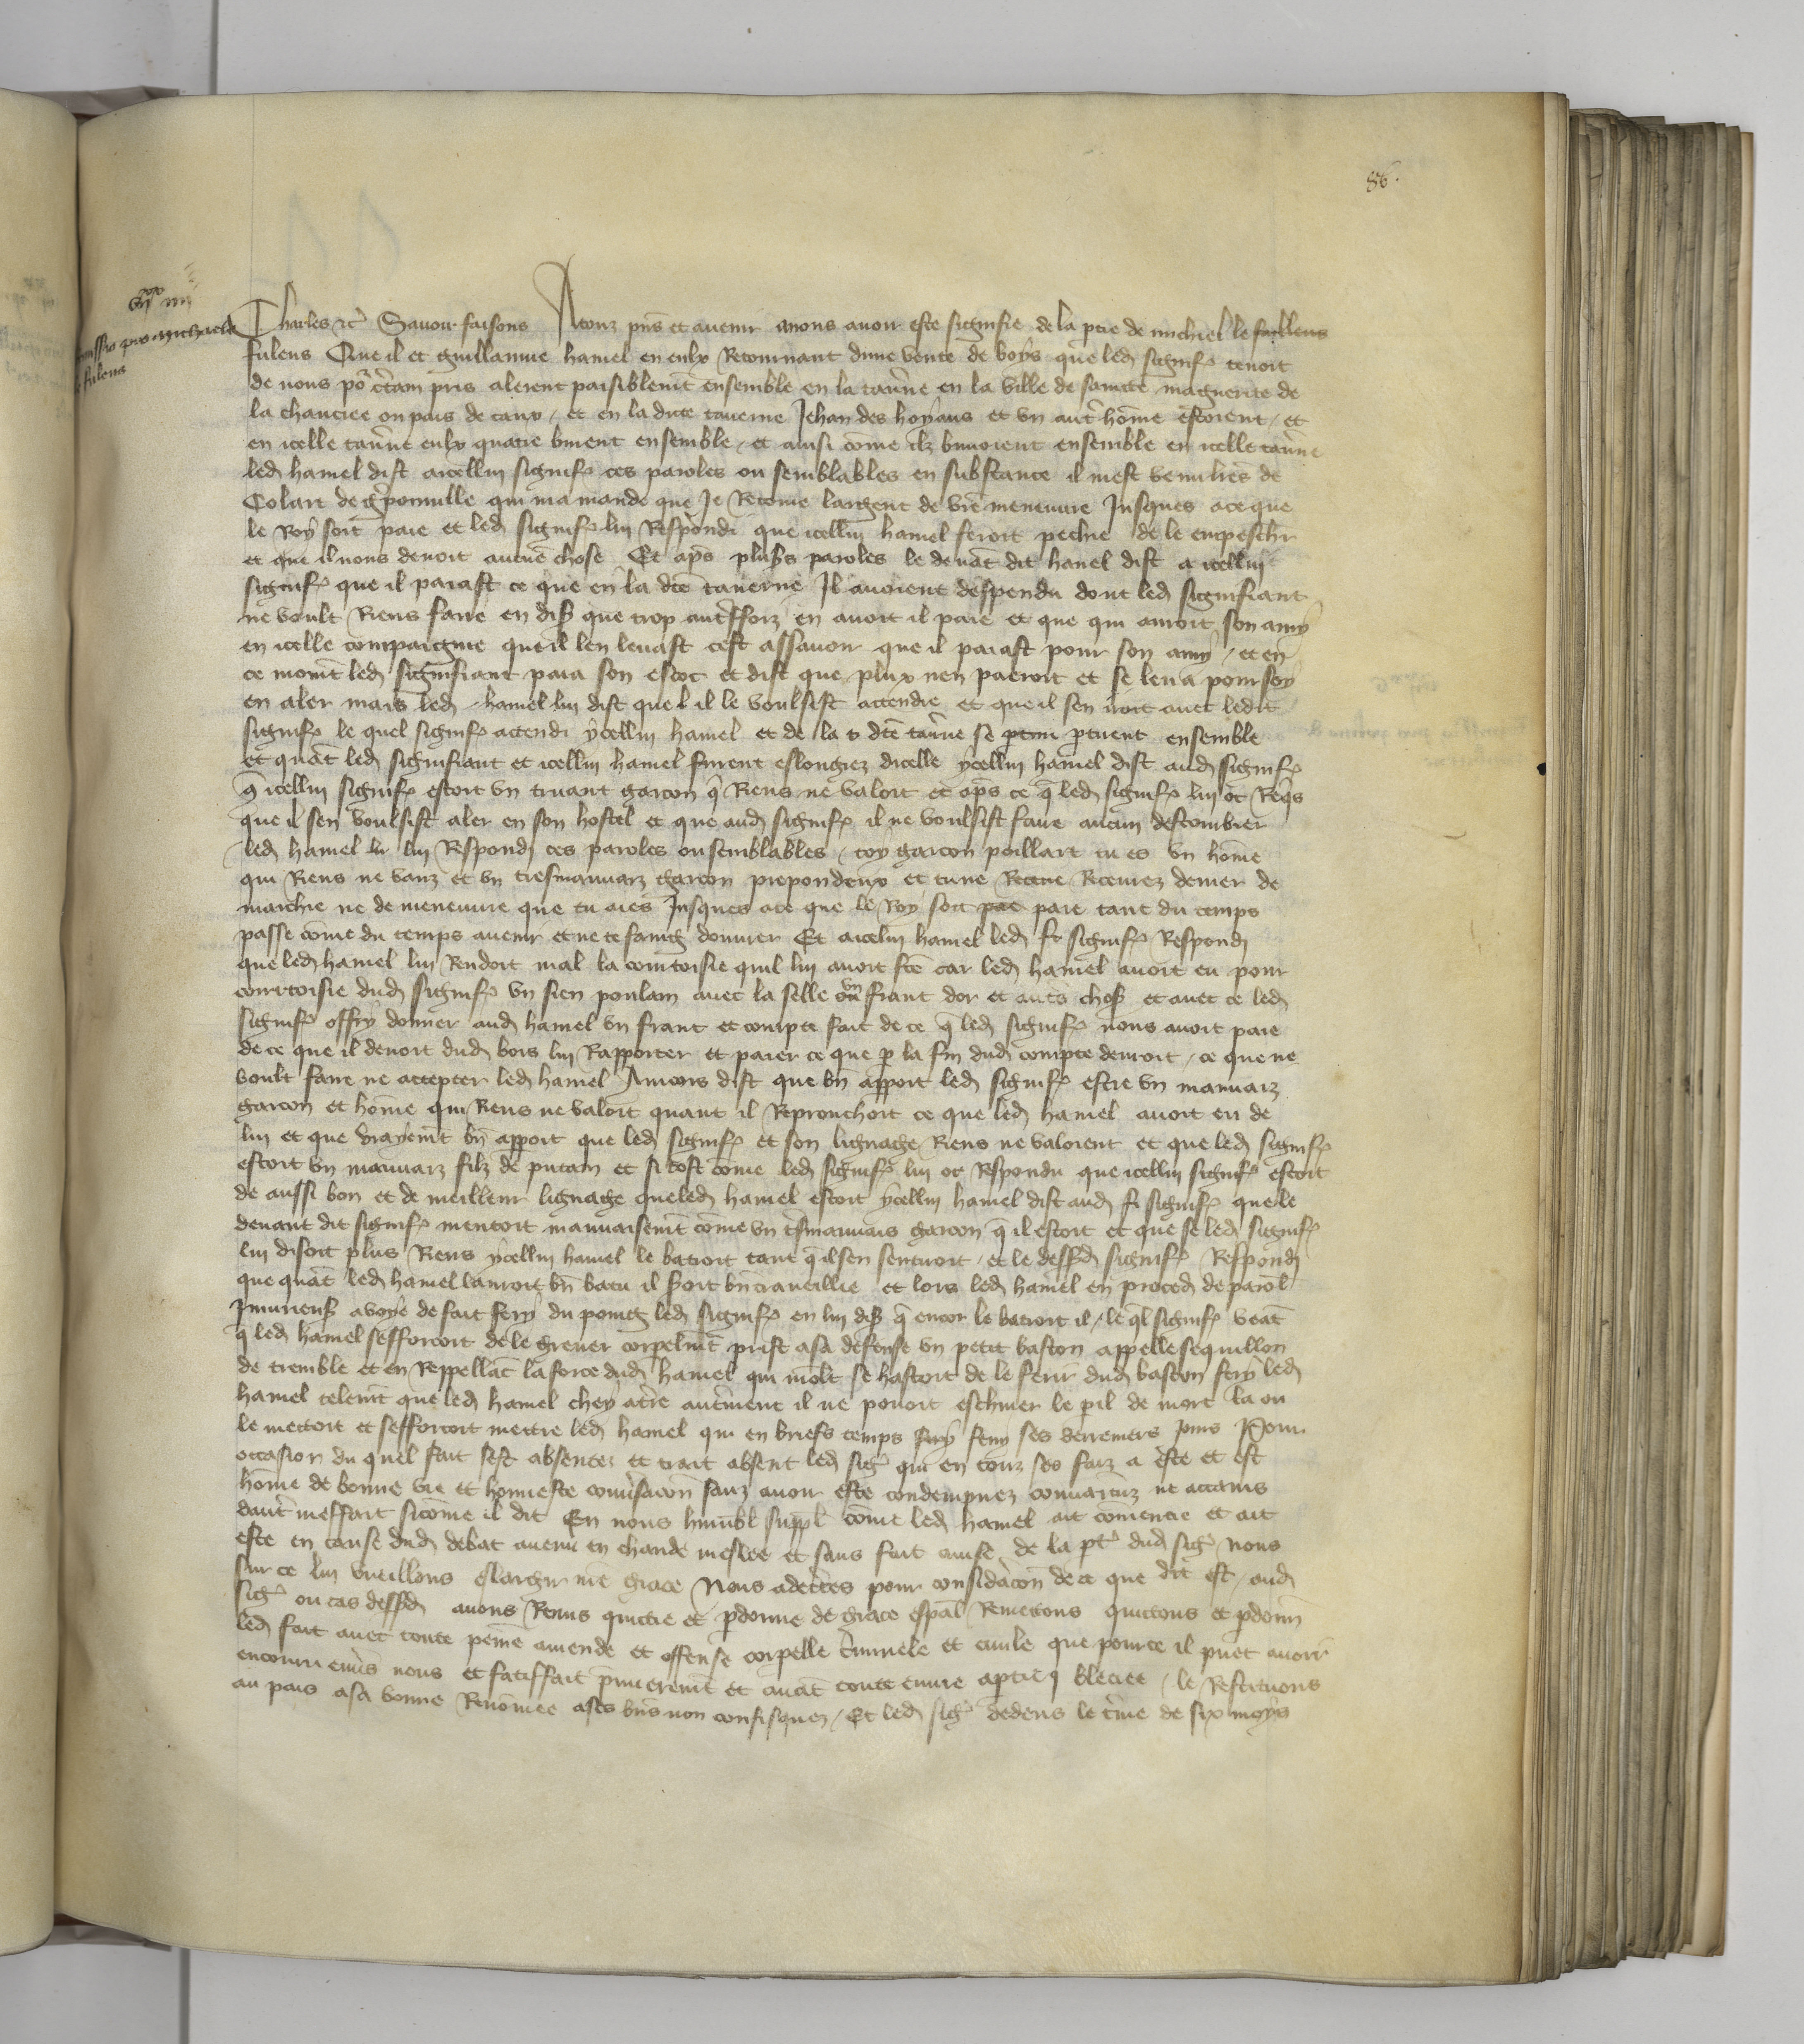 86.
Charles etc̃ Sauoir faisons Atouz pñs et auenir anous auoir este signifie de la ptie de michiel le faillens
fulens Que il et guillaume hamel en eulx Retournant dune vente de boys que led signif. tenoit
de nous po' c̃tain pris alerent paisiblemt ensemble en la tau̾ne en la ville de saincte marguerite de
la chauciee ou pais de caux / et en la dicte tauerne Jehan des hoyaus et vn aut̾ hõme estoient / et
en icelle tau̾ne eulx quatre burent ensemble / et ainsi cõme ilz buuoient ensemble en icelle tau̾ne
led hamel dist aicellui signif. ces paroles ou semblables en substance il mest venu lr̃es de
Colart de gponuille qui ma mande que Je Retiene largent de vr̃e meneuure Jusques ace que
le Roy soit paie et led signif. lui Respondi que icellui hamel feroit pechie de le empeschr
et que il nous deuoit aucũe chose Et ap̃s plus̾s paroles le deuãt dit hamel dist a icellui
signif. que il paiast ce que en la dc̃e tauerne Il auoient despendu dont led signifiant
ne voult Riens faire en dis̃ que trop aut̾fforz en auoit il paie et que qui auroit son amy
en icelle compaignie que il len leuast cest assauoir que il paiast pour son amy / et en
ce momẽt led signifiant paia son escot et dist que plux nen paieroit et se leua pour soy
en aler mais led hamel lui dist que il le voulsist attendre et que il sen iroit auec ledit
signif. le quel signif. attendi ycellui hamel et de la dc̃e tau̾ne se ptirent ensemble
et quãt led signifiant et icellui hamel furent eslongiez dicelle ycellui hamel dist aud signif.
q̃ icellui signif. estoit vn truant garcon q̃ Riens ne valoit et ap̃s ce q̃ led signif. lui ot Req̃s
que il sen voulsist aler en son hostel et que aud signif. il ne voulsist faire aucun destourbier
led hamel lui Respondi ces paroles ou semblables / toy garcon poillart tu es vn hõme
qui Riens ne vauz et vn tresmauuaiz garcon prepondeux et tu ne Receue Receurez denier de
marchie ne de meneuure que tu aies Jusques ace que le Roy soit pae paie tant du temps
passe cõme du temps auenir et ne te faing donner Et aicelui hamel led fr signif. Respondi
que led hamel lui Rendoit mal la courtoisie quil lui auoit fc̃e car led hamel auoit eu pour
courtoisie dud signif. vn sien poulain auec la selle vn franc dor et aut̾s chos̃ et auec ce led
signif. offry donner aud hamel vn franc et compte fait de ce q̃ led signif. nous auoit paie
de ce que il deuoit dud bois lui Rapporter et paier ce que p la fin dud compte deuroit / ce que ne
voult faire ne accepter led hamel Aincois dist que bñ apport led signif. estre vn mauuaiz
garcon et hõme qui Riens ne valoit quant il Reprouchoit ce que led hamel auoit eu de
lui et que vrayemt bñ apport que led signif. et son lignage Riens ne valoient et que led signif.
estoit vn mauuaiz filz de putain et si tost cõme led signif. lui ot Respondu que icellui signif. estoit
de aussi bon et de meilleur lignage que led hamel estoit ycellui hamel dist aud fi signif. que le
deuant dit signif. mentoit mauuaisemt cõme vn tresmauuais garcon q̃ il estoit et que se led signif.
lui disoit plus Riens ycellui hamel le batroit tant q̃ il sen sentiroit / et le dessd signif. Respondi
que quãt led hamel lauroit bñ batu il s̾oit bñ traueillie et lors led hamel en proced de parol
Jniurieus̃ a voye de fait fery du poing led signif. en lui dis̃ q̃ encor le batroit il / le q̃l signif. veãt
q̃ led hamel sefforcoit de le greuer corpelmt prist a sa defense vn petit baston appelle sequillon
de tremble et en Reppellãt la force dud hamel qui molt se hastoit de le ferir dud baston fery led
hamel telemt que led hamel chey at̾re aut̾ment il ne pouoit escheuer le pil de mort la ou
le mettoit et sefforcoit mettre led hamel qui en briefs temps fery feny ses derreniers jours Pour
occasion du quel fait sest absente et trait absent led sig' qui en touz ses faiz a este et est
hõme de bonne vie et honneste conu̾sacõn sanz auoir este condempnez conuaincuz ne actains
daut̾ meffait sicõme il dit En nous humbl suppl cõme led hamel ait cõmencie et ait
este en cause dud debat auenu en chaude meslee et sans fait auise de la pt' dud sig' nous
sur ce lui vueillons eslargir nr̃e grace Nous adec̃tes pour considacõn de ce que dit est / aud
sig' ou cas dessd auons Remis quictie et pdonne de grace esp̃al Remettons quictons et pdonñ
led fait auec toute peine amende et offense corpelle c̾iminele et ciuile que pour ce il puet auoir
encouru enu̾s nous et satisffait p̾mieremt et auãt toute euure a ptie bleciee / le Restituons
au pais asa bonne Renõmee ases biẽs non confisquez / Et led sig' dedens le t̾me de six moys